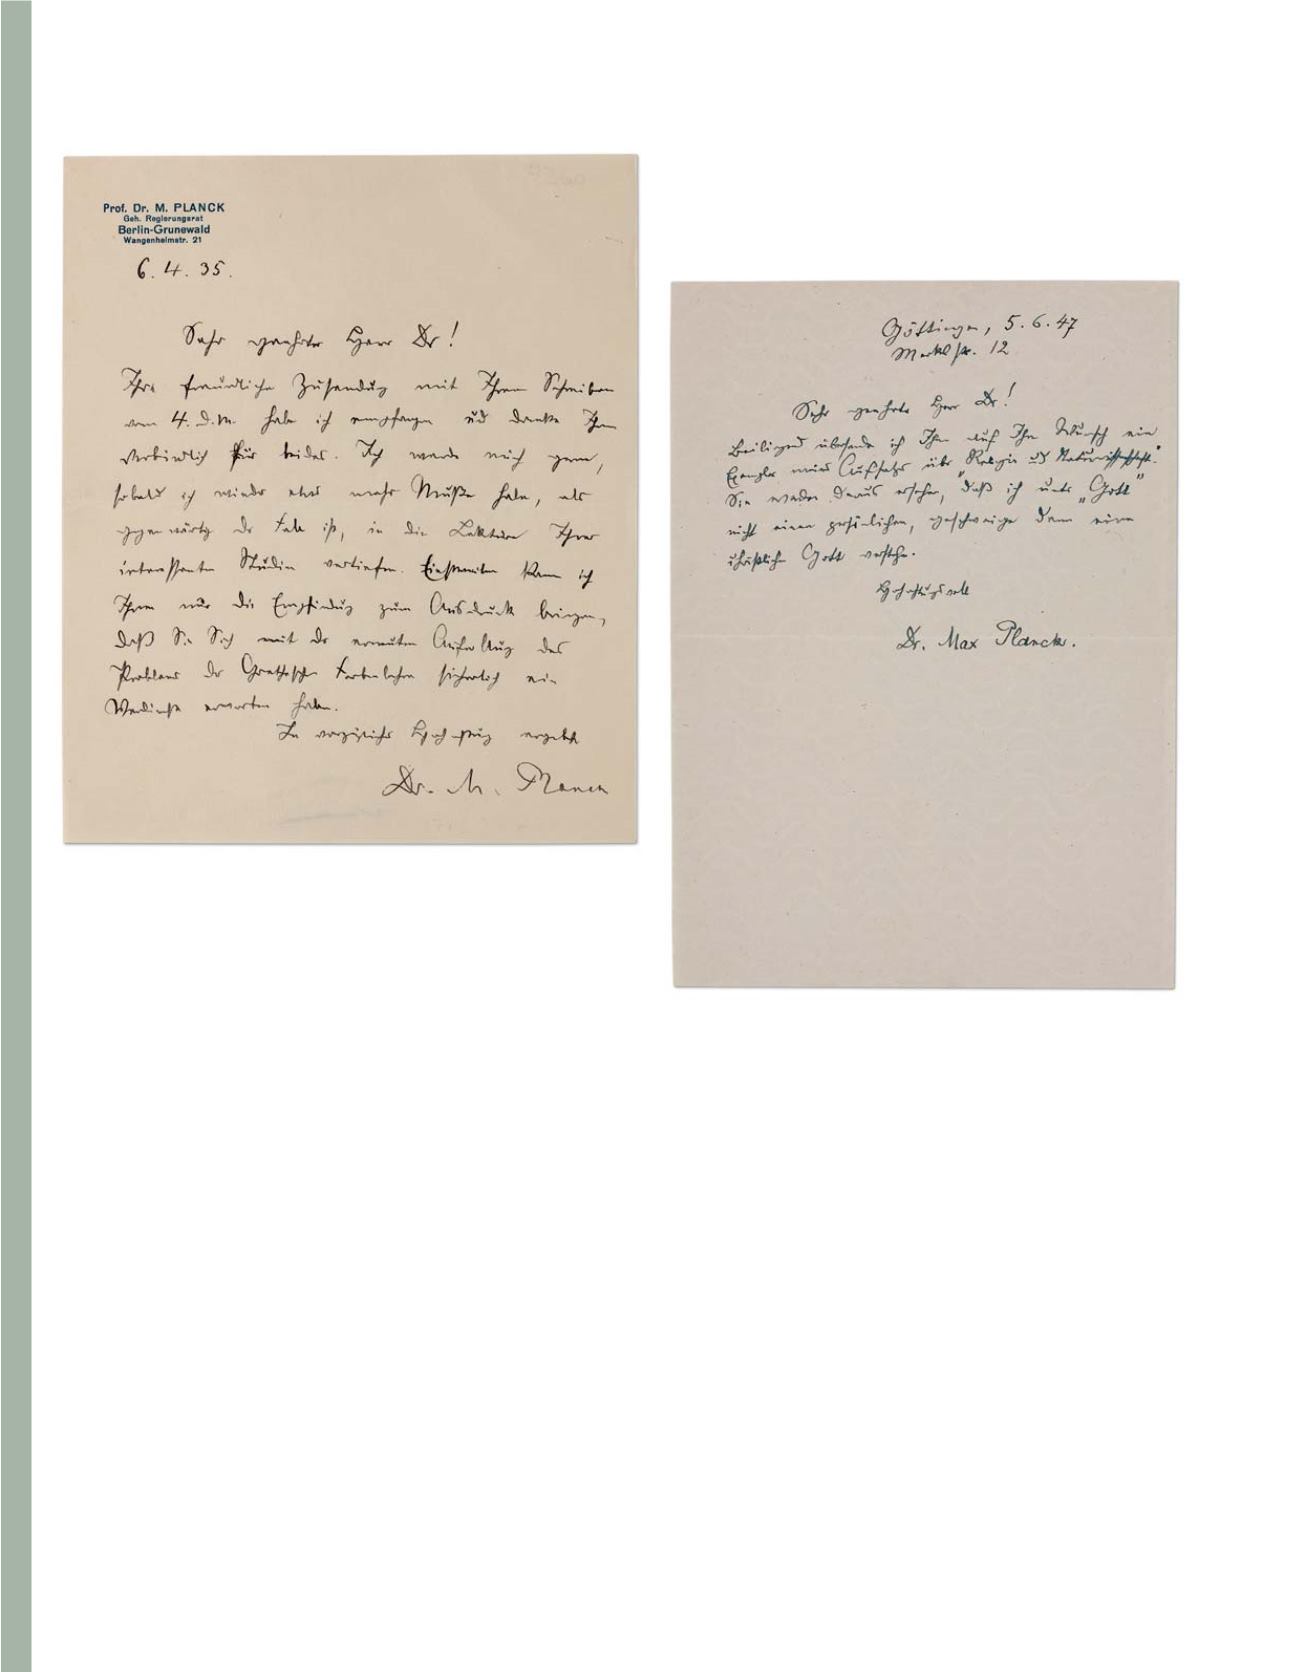 Prof. Dr. M. PLANCK
Geh. Regierungsrat
Berlin-Grunewald
Wangenheimstr. 21
6. 4. 35.
Sehr geehrter Herr Dr!
Ihre freundliche Zusendung mit Ihrem Schreiben
vom 4. d. M. habe ich empfangen und danke Ihnen
verbindlich für beides. Ich werde mich gern,
sobald ich wieder etwas mehr Muße habe, als
gegenwärtig der Fall ist, in die Lektüre Ihrer
interessanten Studien vertiefen. Einstweilen kann ich
Ihnen nur die Empfindung zum Ausdruck bringen,
daß Sie Sich mit der erneuten Aufrollung des
Problems der Goetheschen Farbenlehre sicherlich ein
Verdienst erworben haben.
In vorzüglicher Hochachtung ergebenst
Dr. M. Planck
Göttingen, 5. 6. 47
Merkelstr. 12
Sehr geehrter Herr Dr!
Beiliegend übersende ich Ihnen auf Ihren Wunsch ein
Exemplar meines Aufsatzes über „Religion und Naturwissenschaft“.
Sie werden daraus ersehen, daß ich unter „Gott“
nicht einen persönlichen, geschweige denn einen
christlichen Gott verstehe.
Hochachtungsvoll
Dr. Max Planck.